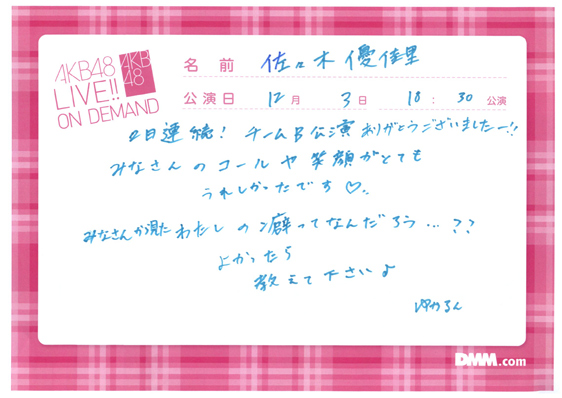 AKB48
LIVE!!
ON DEMAND
AKB
48
名 前 佐々木 優佳里
公演日 12月 3日 18:30 公演
2日連続! チームB公演ありがとうございましたー!!
みなさんのコールや笑顔がとても
うれしかったです♡..
みなさんが見たわたしの癖ってなんだろう…??
よかったら
教えて下さいよ
ゆかるん
DMM.com